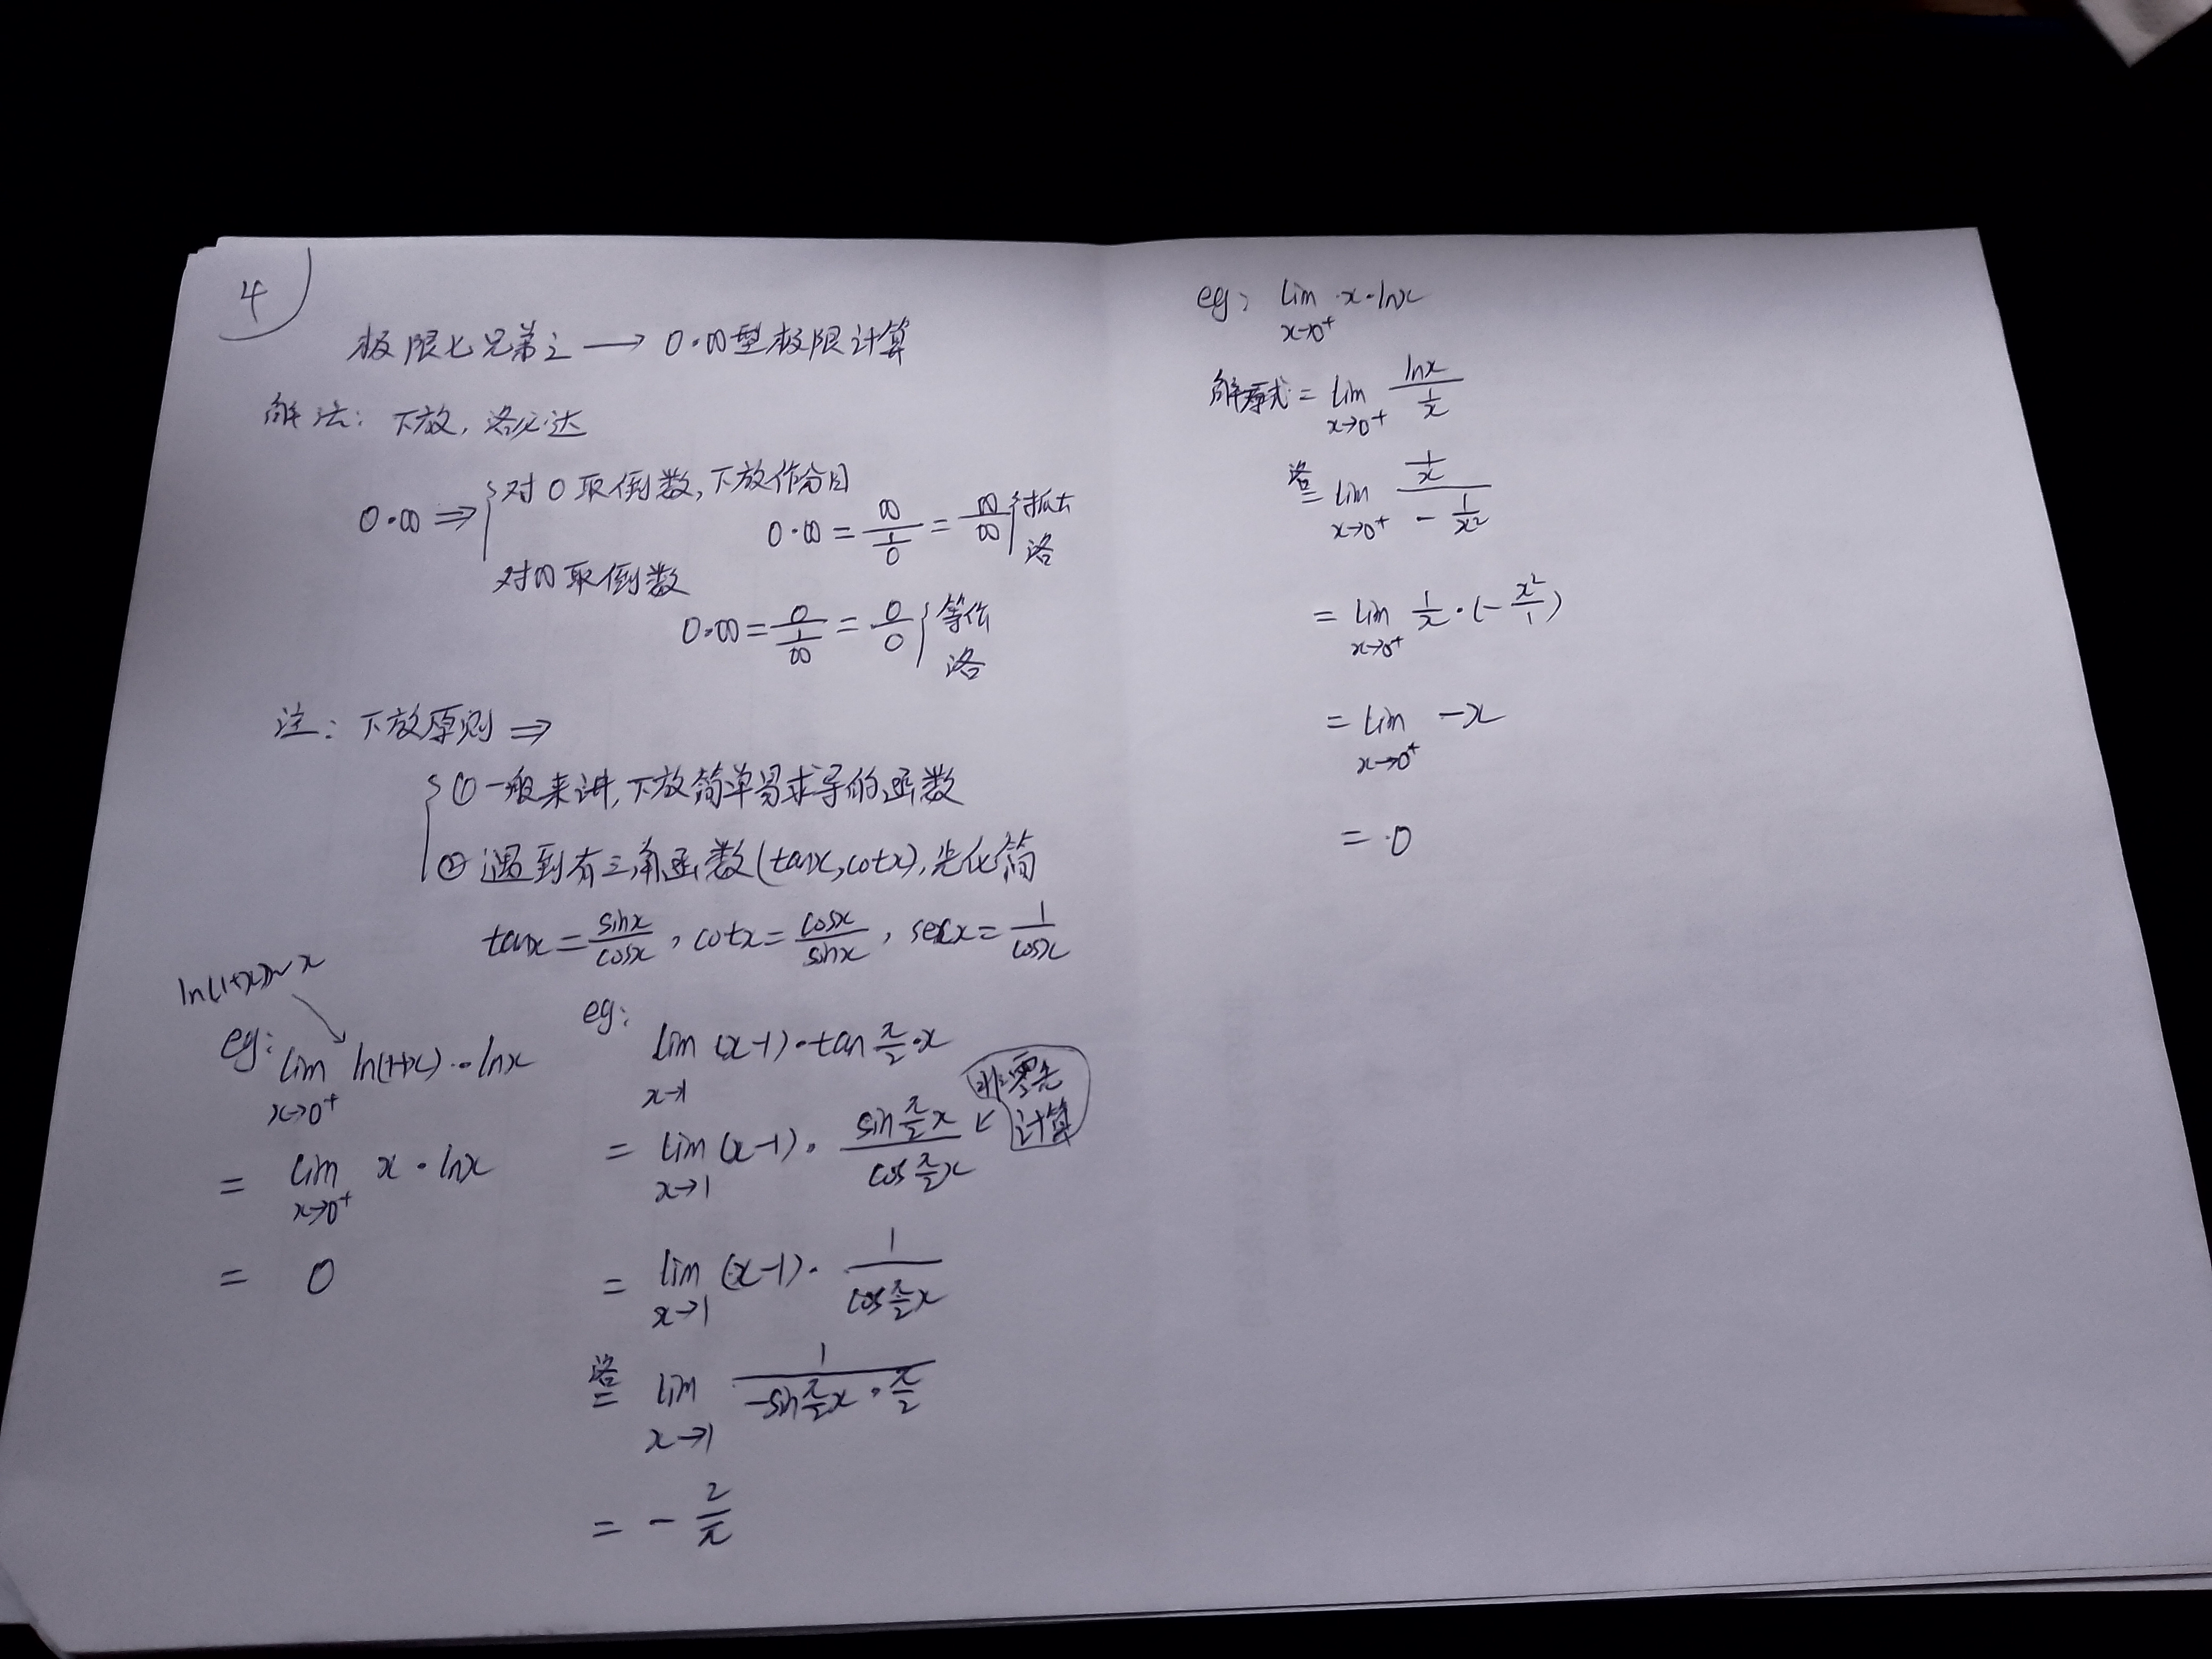 4
极限七兄弟之 → 0·∞型极限计算
解法: 下放, 洛必达
0·∞ ⇒ { 对0取倒数, 下放作分母
0·∞ = ∞/(1/0) = ∞/∞ { 抓大
洛
对∞取倒数
0·∞ = 0/(1/∞) = 0/0 { 等价
洛
注: 下放原则 ⇒
{ ① 一般来讲, 下放简单易求导的函数
② 遇到有三角函数(tanx, cotx), 先化简
tanx = sinx/cosx, cotx = cosx/sinx, secx = 1/cosx
ln(1+x)~x
eg: lim x→0⁺ ln(1+x)·lnx
= lim x→0⁺ x·lnx
= 0
eg:
lim x→1 (x-1)·tan π/2·x
= lim x→1 (x-1)· sin π/2 x / cos π/2 x ← 非零先
计算
= lim x→1 (x-1)· 1/cos π/2 x
洛= lim x→1 1/(-sin π/2 x · π/2)
= - 2/π
eg: lim x→0⁺ x·lnx
解原式 = lim x→0⁺ lnx/(1/x)
洛= lim x→0⁺ (1/x)/(- 1/x²)
= lim x→0⁺ 1/x·(- x²/1)
= lim x→0⁺ -x
= 0